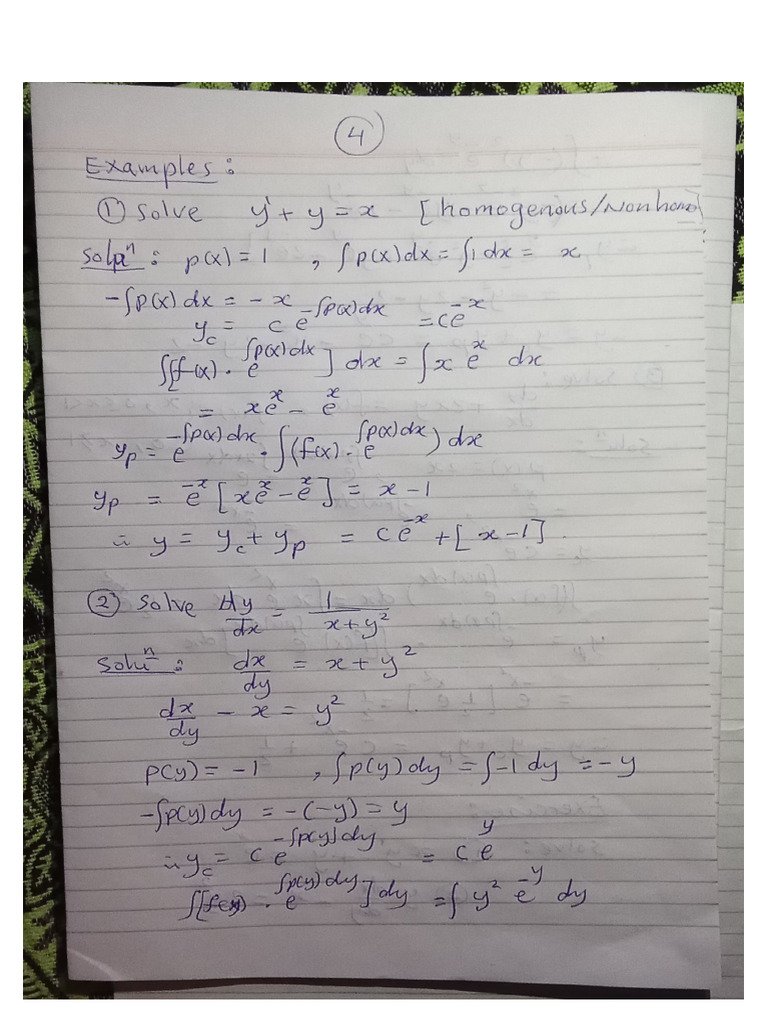 4
Examples:
① Solve y' + y = x [homogenous/Nonhomo]
Soluⁿ: p(x) = 1 , ∫p(x)dx = ∫1 dx = x
-∫p(x)dx = -x
y_c = c e^{-∫p(x)dx} = ce^{-x}
∫[f(x)·e^{∫p(x)dx}] dx = ∫x e^x dx
= xe^x - e^x
y_p = e^{-∫p(x)dx}·∫(f(x)·e^{∫p(x)dx})dx
y_p = e^{-x}[xe^x - e^x] = x-1
∴ y = y_c + y_p = ce^{-x} + [x-1].
② Solve dy/dx = 1/(x+y²)
Soluⁿ: dx/dy = x + y²
dx/dy - x = y²
p(y) = -1 , ∫p(y)dy = ∫-1dy = -y
-∫p(y)dy = -(-y) = y
∴ y_c = c e^{-∫p(y)dy} = c e^y
∫[f(y)·e^{∫p(y)dy}]dy = ∫y² e^{-y} dy